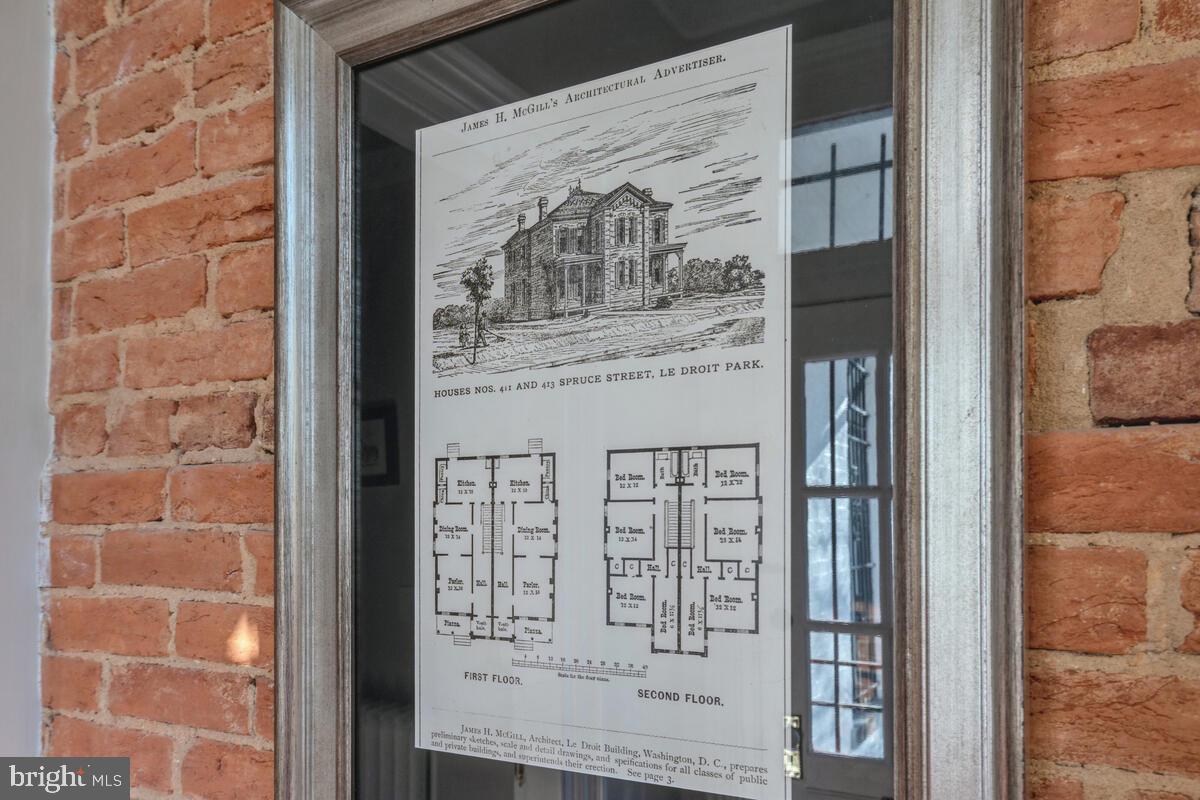 James H. McGill's Architectural Advertiser.
HOUSES NOS. 411 AND 413 SPRUCE STREET, LE DROIT PARK.
Kitchen. Kitchen.
12 X 10 12 X 10
Dining Room. Dining Room.
12 X 14 12 X 14
Parlor. Hall. Hall. Parlor.
Piazza. Vesti-bule. Vesti-bule. Piazza.
Bed Room. Bath Bath Bed Room.
12 X 12
Bed Room. Bed Room.
12 X 14
C C Hall. Hall. C C
Bed Room. Bed Room. Bed Room. Bed Room.
12 X 12 12 X 12
Scale for the floor plans.
FIRST FLOOR.
SECOND FLOOR.
James H. McGill, Architect, Le Droit Building, Washington, D. C., prepares
preliminary sketches, scale and detail drawings, and spefifications for all classes of public
and private buildings, and superintends their erection. See page 3.
bright MLS